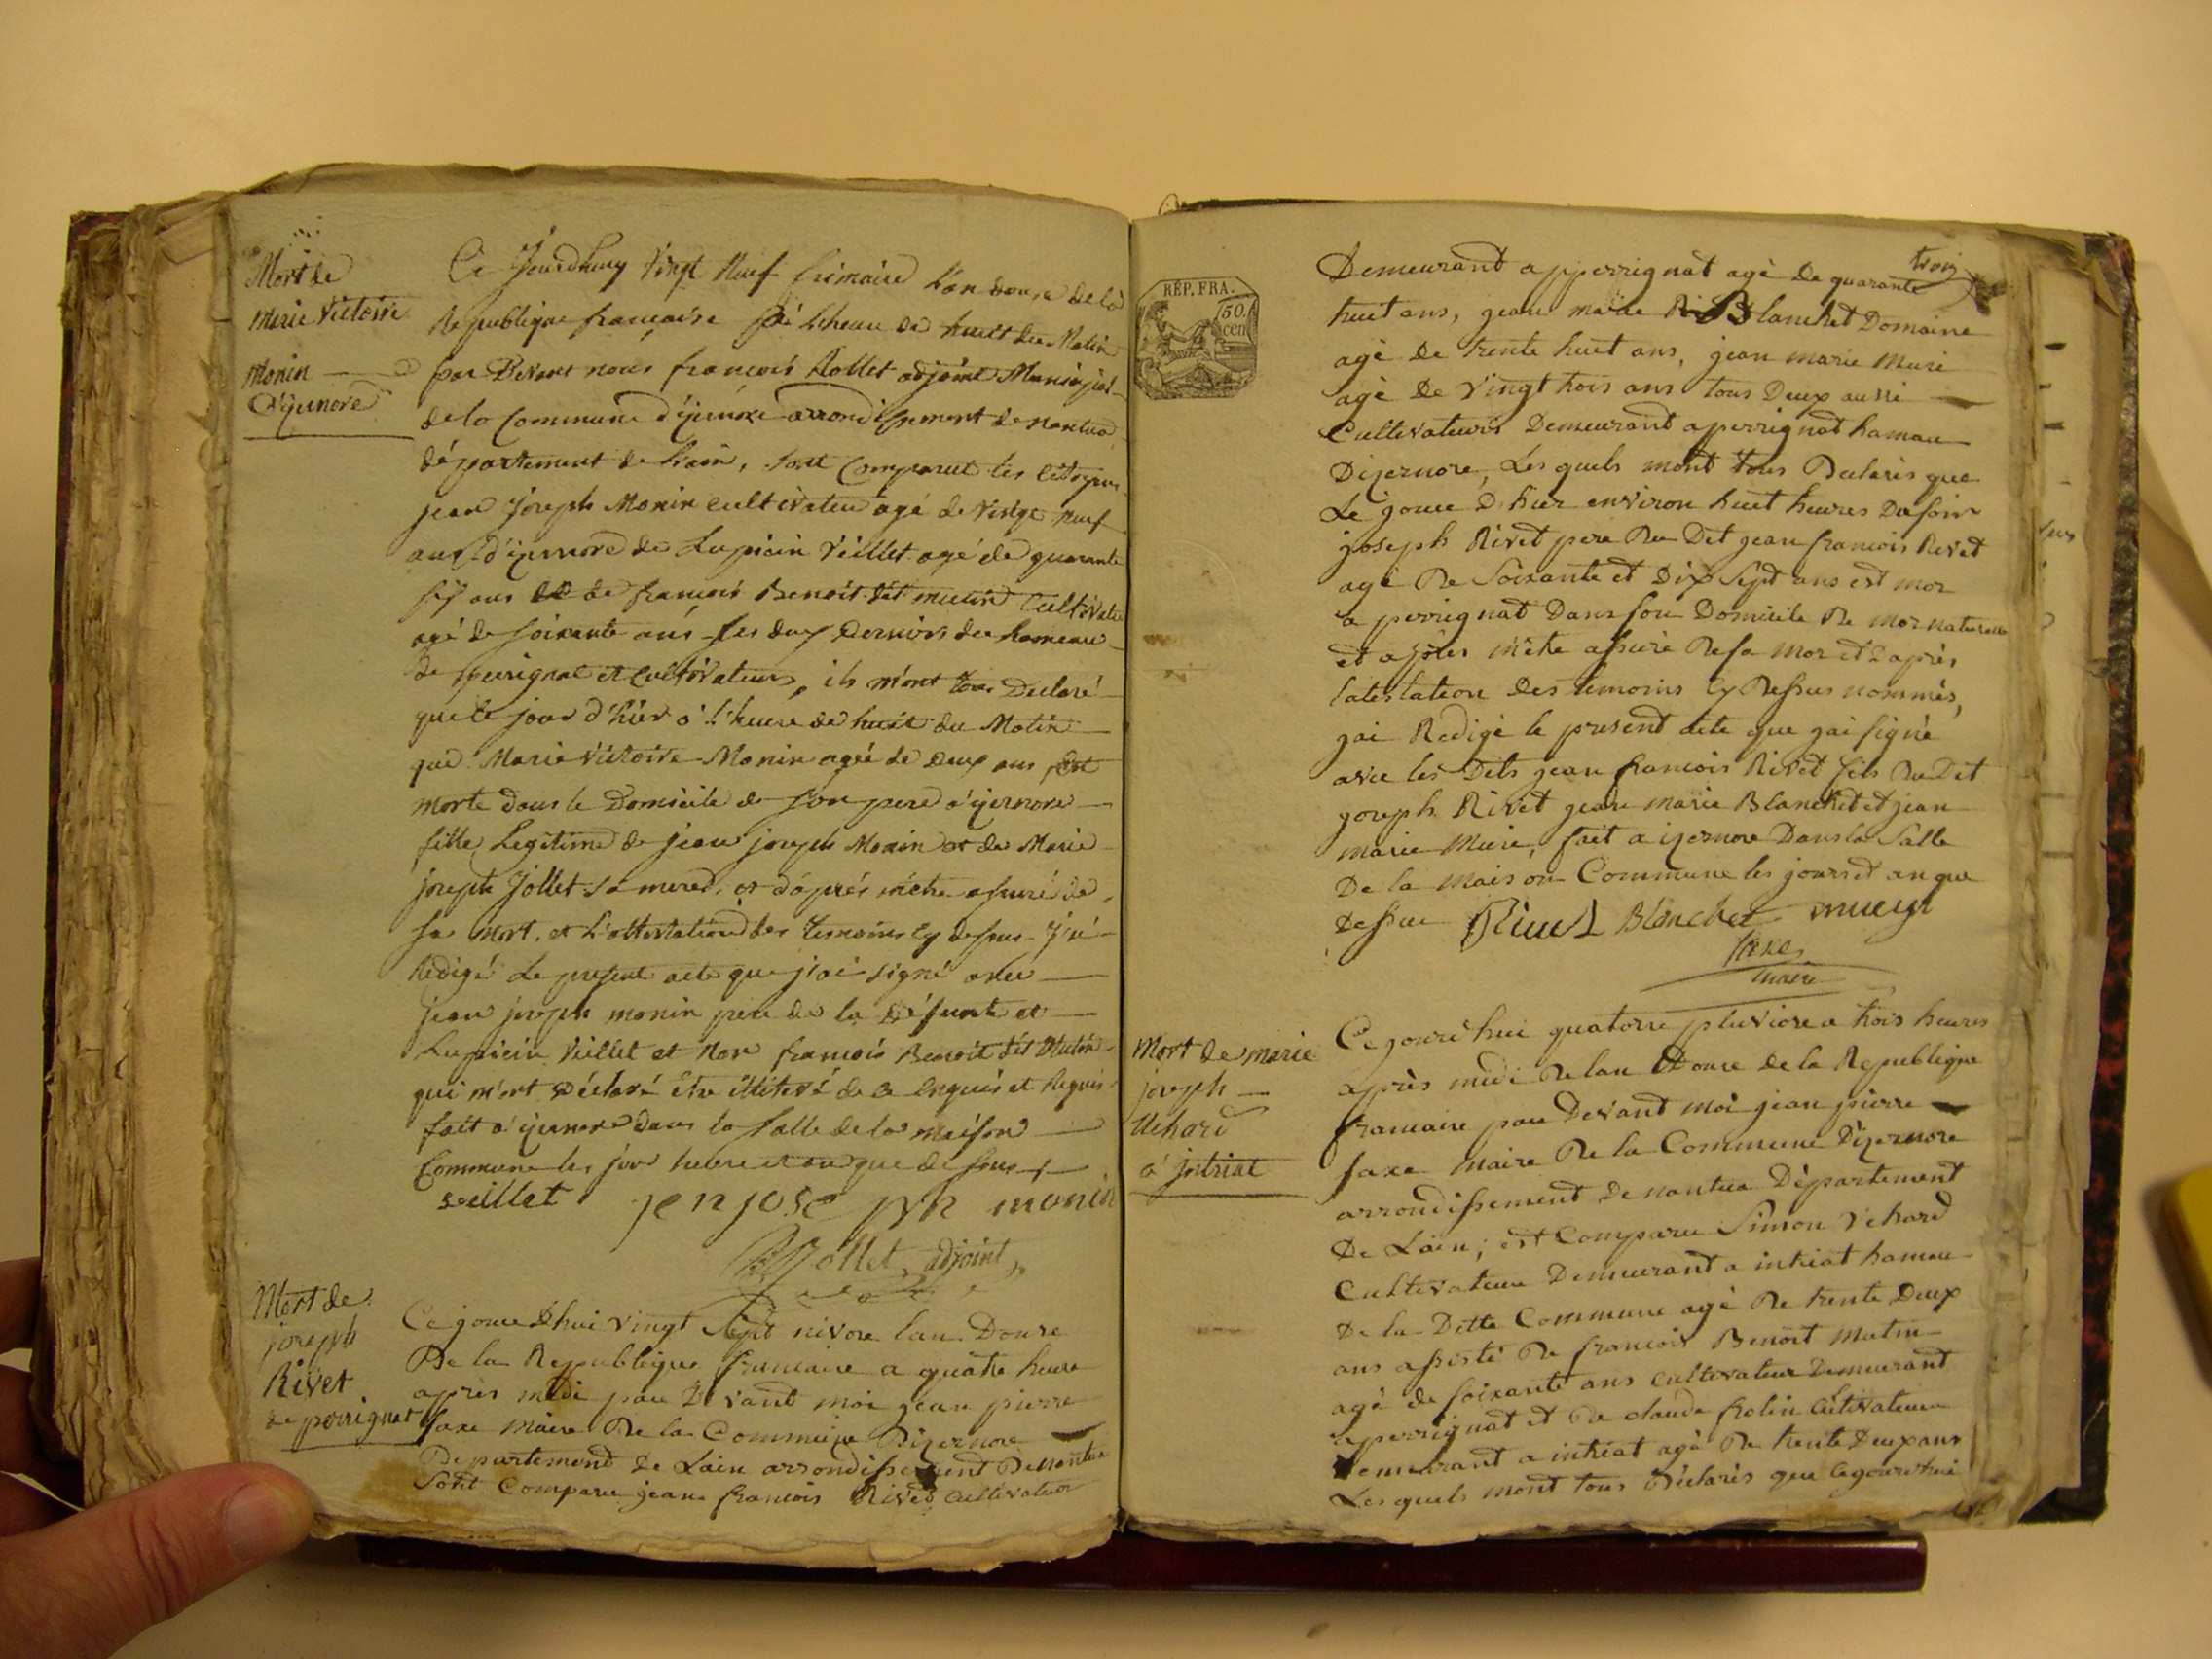 Mort de
Marie Victoire
Monin
d'yzernore
Ce Jourdhuy Vingt Neuf frimaire L'an douze de la
Republique française à Lheure de huit du Matin
par Devant nous françois Rollet adjoint Municipal
de la Commune d'yzernore arrondissement de nantua
département de L'ain, sont Comparut les Citoyens
jean Joseph Monin cultivateur agé de Vingt Neuf
ans d'yzernore de Lupicin Veillet agé de quarante
ans de françois Benoit dit mutin Cultivateur
agé de soixante ans les deux Derniers du hameau
de perignat et Cultivateurs, ils m'ont tous Declaré
que le jour d'hier à L'heure de huit du Matin
que Marie Victoire Monin agée de deux ans, Est
morte dans le Domicile de son pere a yzernore
fille Legitime de jean joseph Monin et de Marie
joseph Jollet sa mered, et d'après m'etre assuré de
sa Mort, et L'attestation des Temoins Cy dessus J'ai
Redigé Le present acte que j'ai signé avec
jean joseph monin père de la Défunte et
Lupicin Veillet et Non françois Benoit dit Mutin
qui m'ont Déclaré être illiteré de ce Enquis et Requis
fait a yzernore dans la Salle de la maison
Commune les jour heure et an que dessus
veillet jenjose ph monin
Rollet adjoint
Mort de
joseph
Rivet
de perrignat
Ce jour dhui vingt Sept nivose lan Douze
De la Republique francaise a quatre heure
après midi par Devant moi jean pierre
faxe Maire De la Commune Dizernore
Departement de Lain arrondissement De nantua
Sont Comparu jean francois Rivet Cultivateur
RÉP. FRA.
50.
cen
trois
Demeurant a pperrignat agé De quarante
huit ans, jean marie Blanchet Domaine
agé De trente huit ans, jean marie Mure
agé De Vingt trois ans tous Deux aussi
Cultivateurs Demeurant a perrignat hamau
Dizernore, Les quels mont Tous Declarés que
Le joure D hier environ huit heures Du soir
joseph Rivet pere Du Dit jean francois Rivet
agé De Soixante et Dix Sept ans est mor
a perrignat Dans son Domicile De mor naturelle
et après m'etre assuré De sa Mor et D après
latestation Des temoins Cy Dessus nommés,
jai Redigé le present acte que jai signé
avec les Dits jean francois Rivet fils Du Dit
joseph Rivet jean marie Blanchet et jean
marie Mure, fait a izernore Dans la Salle
De la maison Commune les jours et an que
Dessus Rivet Blanchet
faxe
maire
Mort de marie
joseph
Uchard
a jntriat
Ce jourd'hui quatorze pluviose a trois heures
après midi De lan Douze de la Republique
francaise par Devant moi jean pierre
faxe Maire De la Commune Dizernore
arrondissement De nantua Département
De Lain, est Comparu Simon Vchard
Cultivateur Demeurant a intriat hamau
De la Dette Commune agé De trente Deux
ans assisté De francois Benoit Mutin
agé de soixante ans cultivateur Demeurant
a perrignat et De claude frolin Cultivateur
Demeurant a intriat agé De trente Deux ans
Les quels mont tous Déclarés que Cejourdhui